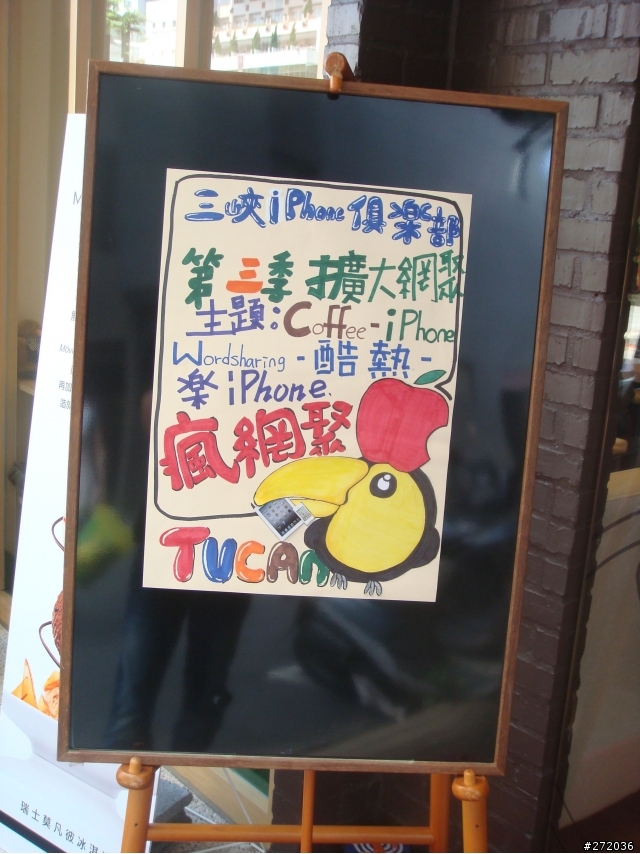 三峽iPhone俱楽部
第三季擴大網聚
主題:Coffee-iPhone
Wordsharing-酷熱-
楽iPhone.
瘋網聚
TUCAN
瑞士莫凡彼冰淇
#272036